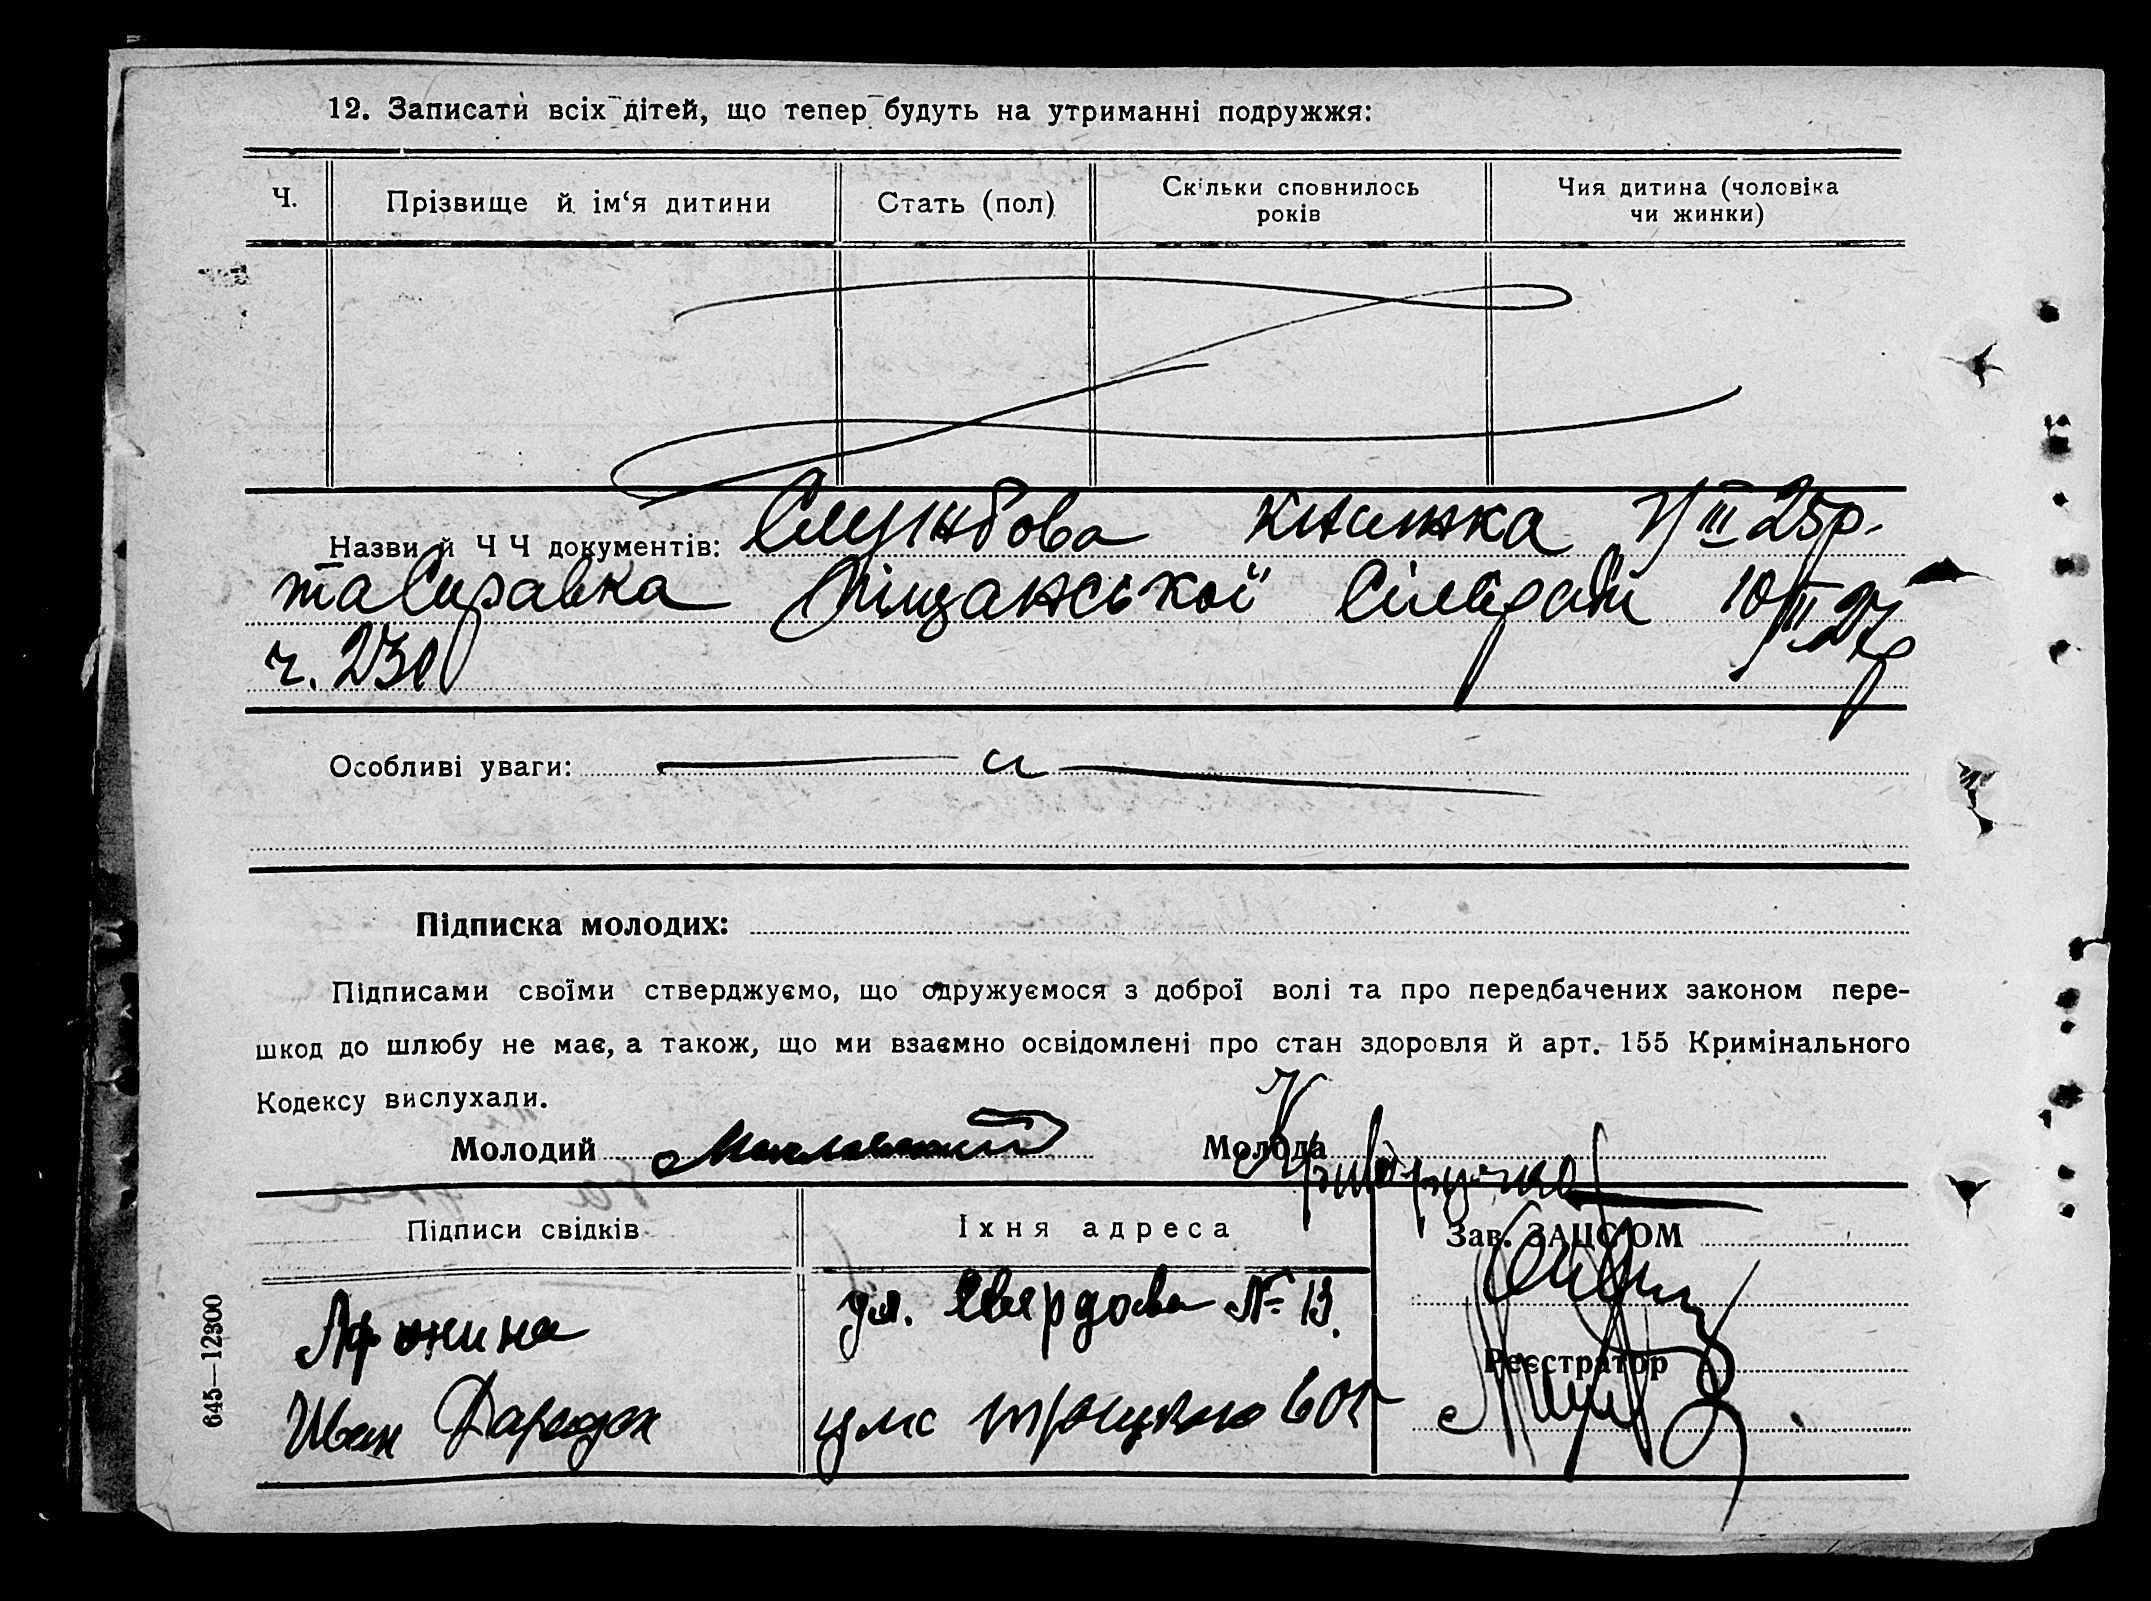 12. Записати всіх дітей, що тепер будуть на утриманні подружжя:
Ч.
Прізвище й ім‘я дитини
Стать (пол)
Скільки сповнилось
років
Чия дитина (чоловіка
чи жинки)
Назви й Ч Ч документів: Службова книжка 7/III 25р.
та Справка Піщанської Сільради 10/III 27р
ч. 230
Особливі уваги:
Підписка молодих:
Підписами своїми стверджуємо, що одружуємося з доброї волі та про передбачених законом пере-
шкод до шлюбу не має, а також, що ми взаємно освідомлені про стан здоровля й арт. 155 Кримінального
Кодексу вислухали.
Молодий
Молода
Підписи свідків
Їхня адреса
Зав. ЗАЦС'ОМ
Афонина
ул. Свердова № 13.
Реєстратор
Иван
645—12300